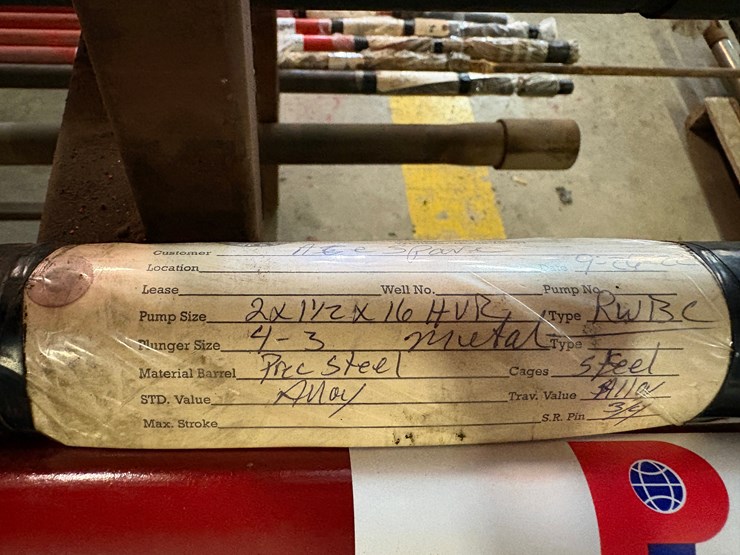 Customer
Location 9-26-22
Lease Well No. Pump No.
Pump Size 2x1 1/2 x 16 HVR Type RWBC
Plunger Size 4-3 metal Type
Material Barrel Prec Steel Cages Steel
STD. Value Alloy Trav. Value Alloy
Max. Stroke S.R. Pin 3/4